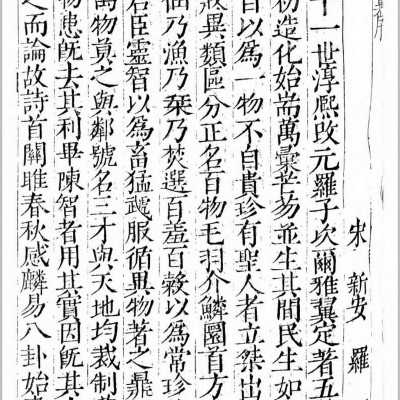 序
宋 新安 羅
十一世淳熙改元羅子次爾雅翼定著五
初造化始耑萬彙芒芴並生其間民生如
自以爲一物不自貴珍有聖人者立桀出
異類區分正名百物毛羽介鱗圜首方
佃乃漁乃乃焚選百羞百穀以爲常珍
君臣靈智以爲畜猛服循異物著之鼎
萬物之與鄰號名三才與天地均裁制
物患旣去其利畢陳智者用其實因旣其
之而論故詩首關雎春秋感麟易八卦始